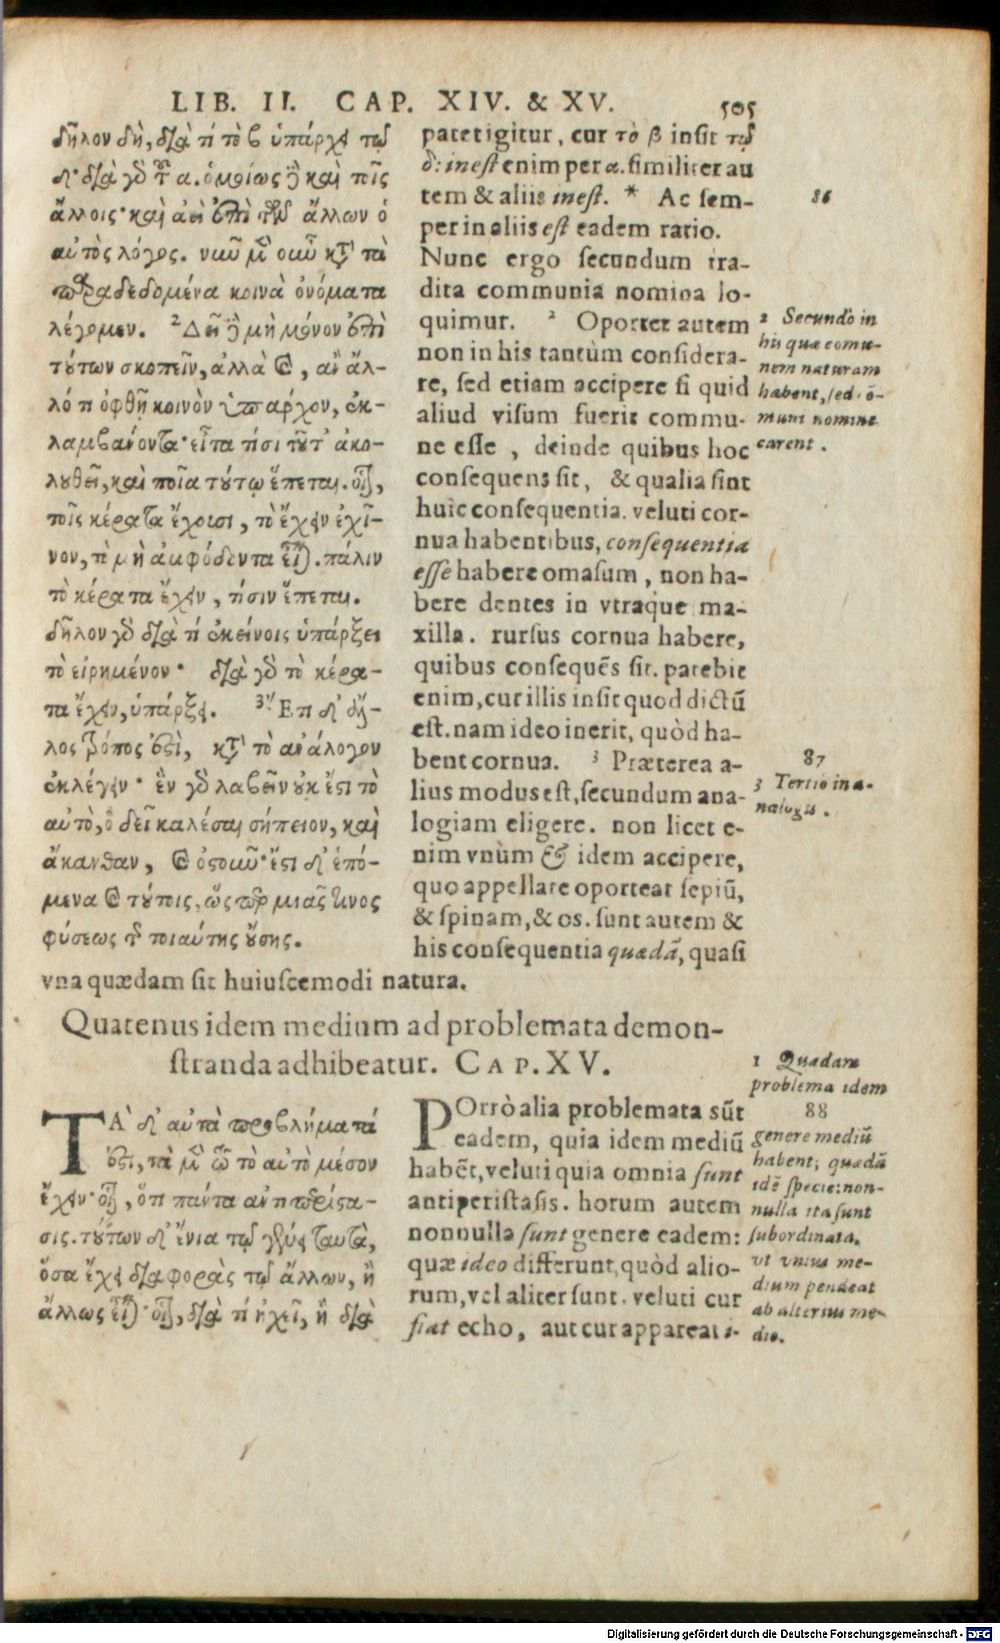 LIB. II. CAP. XIV. & XV. 505
δῆλον δὴ, διὰ τί τὸ β ὑπάρχει τῷ
δ· διὰ γὸ τ̃ α. ὁμοίως ὃ καὶ τοῖς
ἄλλοις· καὶ ἀεὶ ἐπὶ τῶν ἄλλων ὁ
αὐτὸς λόγος. νῦν μὲν οὖν κτ̀ τὰ
παραδεδομένα κοινὰ ὀνόματα
λέγομεν. ²Δεῖ ὃ μὴ μόνον ἐπὶ
τούτων σκοπεῖν, ἀλλὰ καὶ, ἂν ἄλ-
λό τι ὀφθῇ κοινὸν ὑπάρχον, ἐκ-
λαμβάνοντα· εἶτα τίσι τοῦτ' ἀκο-
λουθεῖ, καὶ ποῖα τούτῳ ἕπεται. οἷον,
τοῖς κέρατα ἔχουσι, τὸ ἔχειν ἐχῖ-
νον, τὸ μὴ ἀμφόδοντα εἶναι. πάλιν
τὸ κέρατα ἔχειν, τίσιν ἕπεται.
δῆλον γὸ διὰ τί ἐκείνοις ὑπάρξει
τὸ εἰρημένον· διὰ γὸ τὸ κέρα-
τα ἔχειν, ὑπάρξει. ³Ἔτι δ' ἄλ-
λος τρόπος ἐστὶ, κτ̀ τὸ ἀνάλογον
ἐκλέγειν· ἓν γὸ λαβεῖν οὐκ ἔστι τὸ
αὐτὸ, ὃ δεῖ καλέσαι σήπειον, καὶ
ἄκανθαν, καὶ ὀστοῦν· ἔστι δ' ἑπό-
μενα καὶ τούτοις, ὥσπερ μιᾶς τινος
φύσεως τ̃ τοιαύτης οὔσης.
patet igitur, cur τὸ β insit τῷ
δ: inest enim per α. similiter au
tem & aliis inest. * Ac sem-
per in aliis est eadem ratio.
Nunc ergo secundum tra-
dita communia nomina lo-
quimur. ² Oportet autem
non in his tantùm considera-
re, sed etiam accipere si quid
aliud visum fuerit commu-
ne esse, deinde quibus hoc
consequens sit, & qualia sint
huic consequentia. veluti cor-
nua habentibus, consequentia
esse habere omasum, non ha-
bere dentes in vtraque ma-
xilla. rursus cornua habere,
quibus consequẽs sit. patebit
enim, cur illis insit quod dictũ
est. nam ideo inerit, quòd ha-
bent cornua. ³ Præterea a-
lius modus est, secundum ana-
logiam eligere. non licet e-
nim vnùm & idem accipere,
quo appellare oporteat sepiũ,
& spinam, & os. sunt autem &
his consequentia quædã, quasi
vna quædam sit huiuscemodi natura.
86
2 Secundò in
his quæ comu-
nem naturam
habent, sed cō-
muni nomine
carent.
87
3 Tertio in a-
nalogis.
Quatenus idem medium ad problemata demon-
stranda adhibeatur. CAP. XV.
ΤᾺ δ' αὐτὰ προβλήματά
ἐστι, τὰ μὲν τῷ τὸ αὐτὸ μέσον
ἔχειν· οἷον, ὅτι πάντα ἀντιπερίστα-
σις. τούτων δ' ἔνια τῷ γένει ταὐτὰ,
ὅσα ἔχει διαφορὰς τῷ ἄλλων, ἢ
ἄλλως εἶναι· οἷον, διὰ τί ἠχεῖ, ἢ διὰ
POrrò alia problemata sũt
eadem, quia idem mediũ
habẽt, veluti quia omnia sunt
antiperistasis. horum autem
nonnulla sunt genere eadem:
quæ ideo differunt, quòd alio-
rum, vel aliter sunt. veluti cur
fiat echo, aut cur appareat i-
1 Quædam
problema idem
88
genere mediũ
habent; quædã
idẽ specie: non-
nulla ita sunt
subordinata,
vt vnius me-
dium pendeat
ab alterius me-
dio.
Digitalisierung gefördert durch die Deutsche Forschungsgemeinschaft - DFG